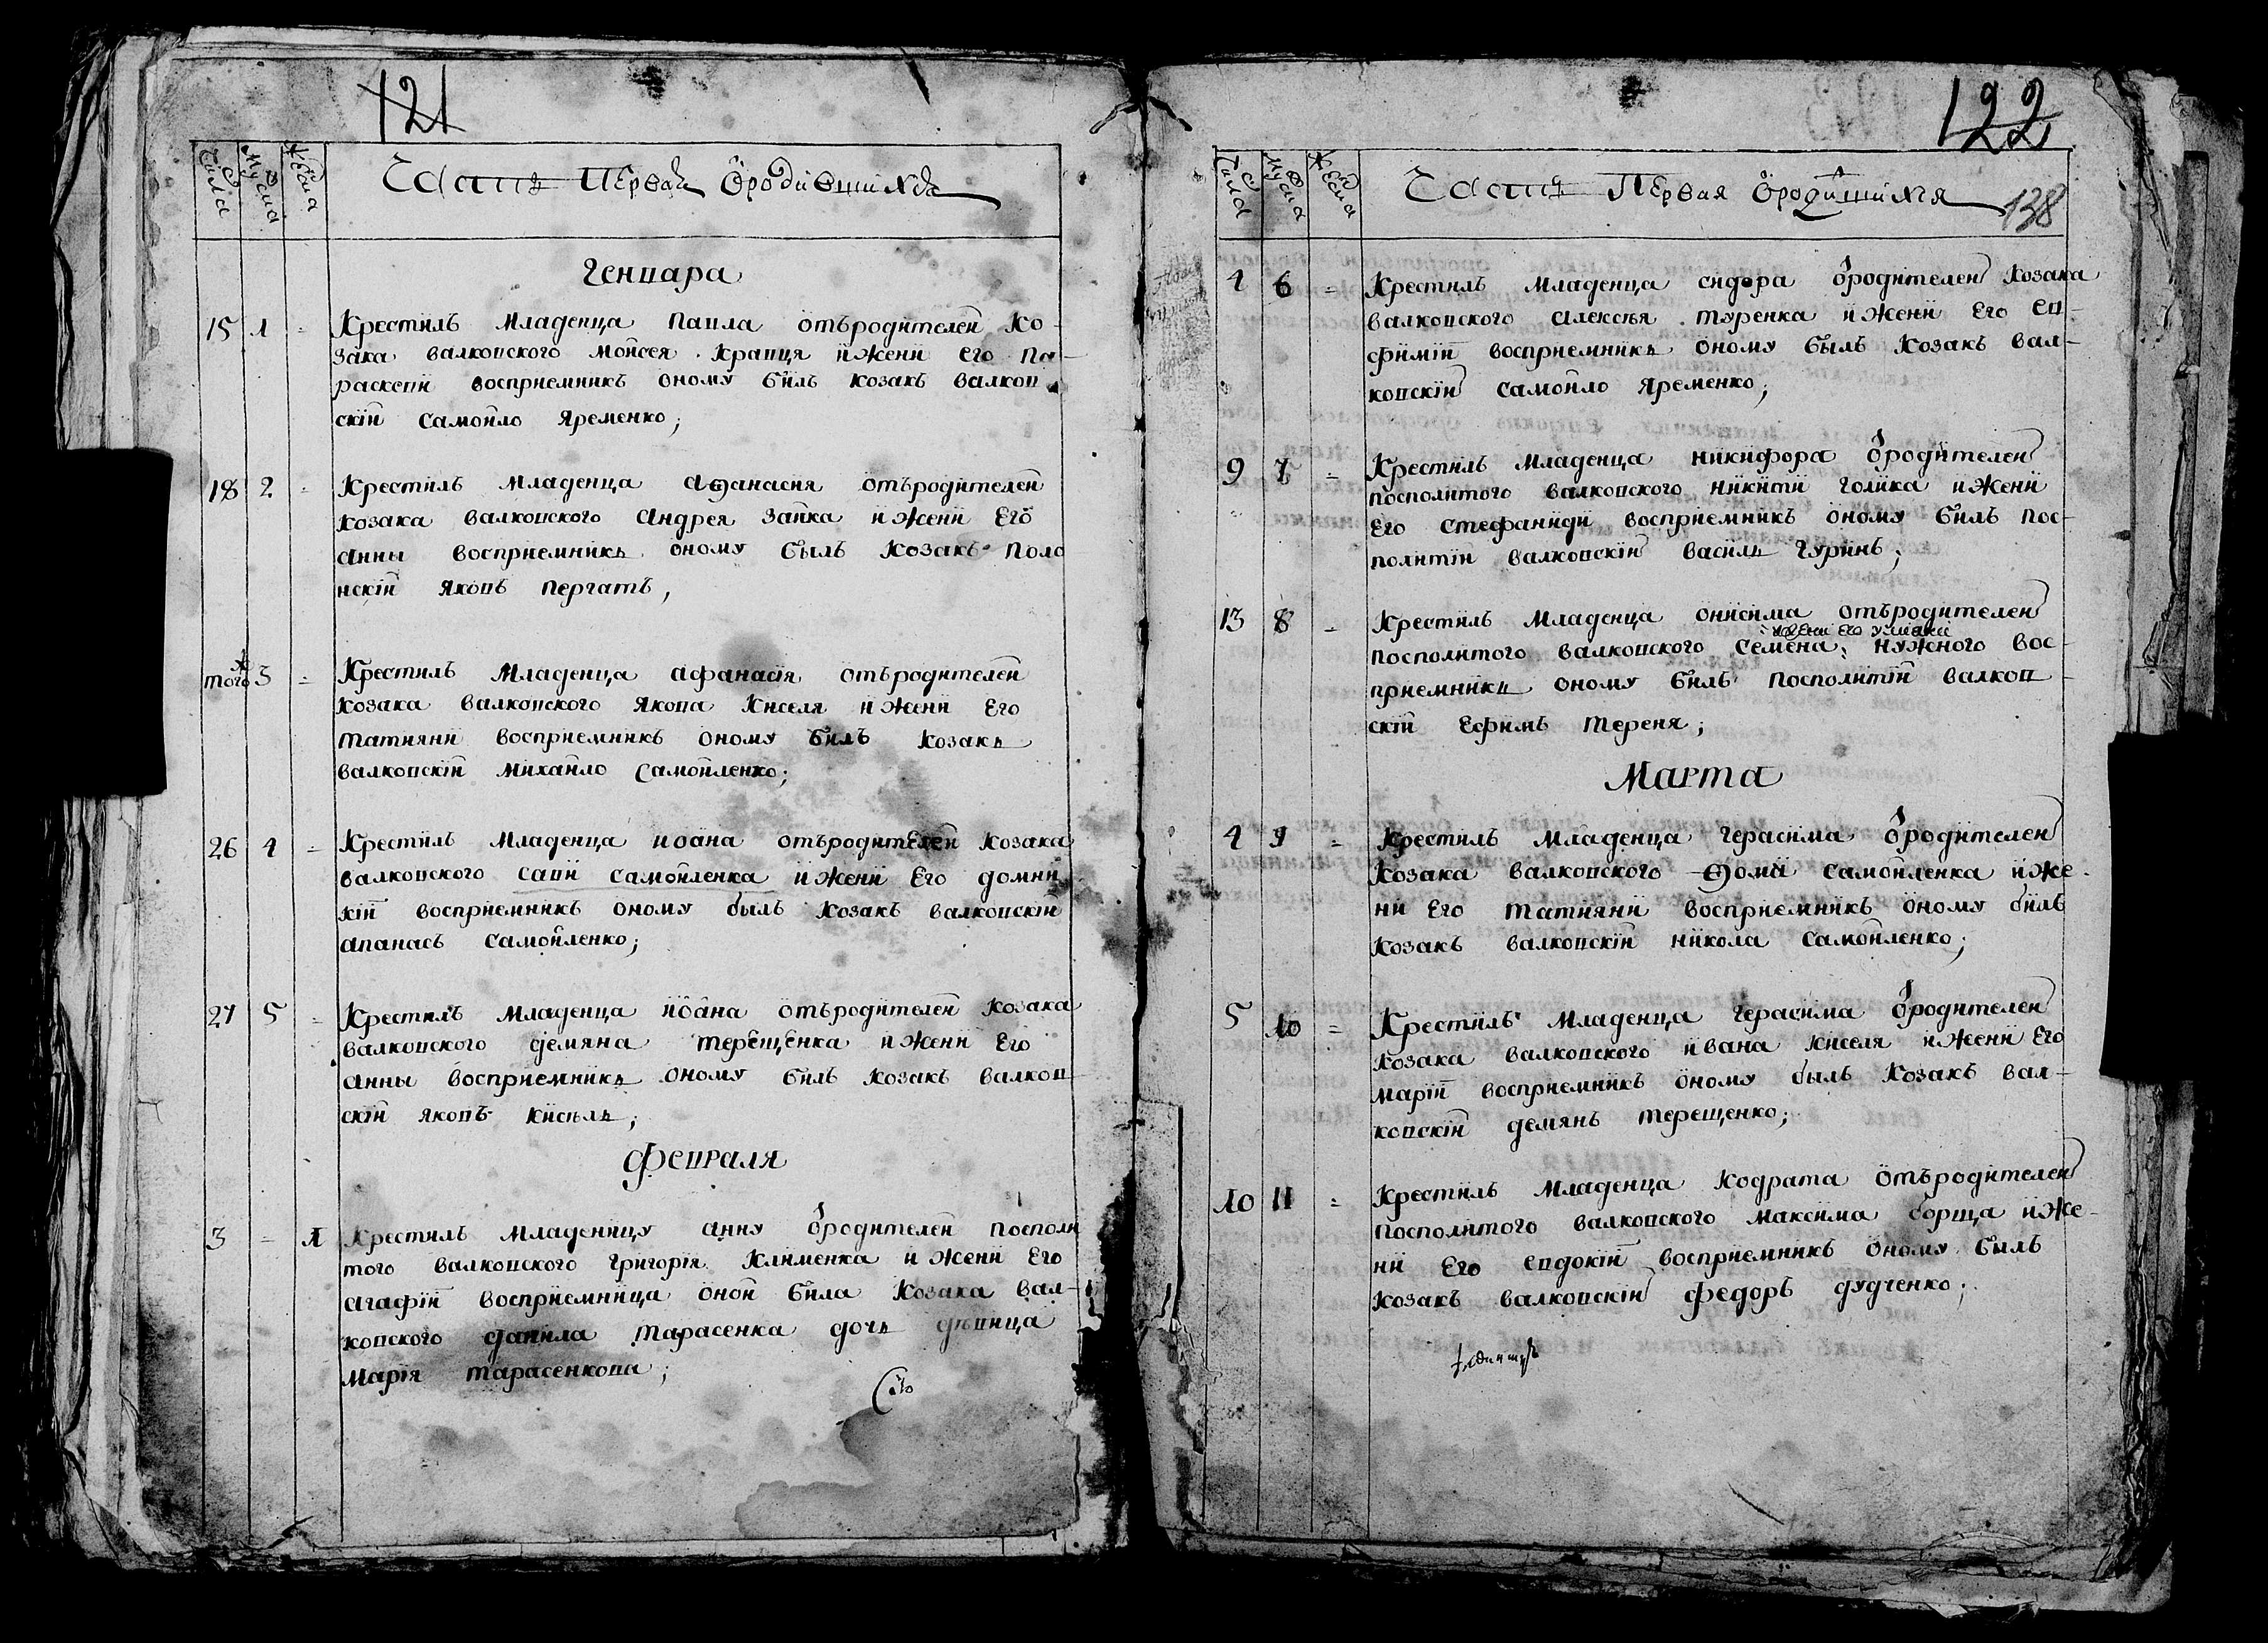 121
Числа
Мужеска
Женска
Часть Первая ородившихся
Генвара
15 1 = Крестилъ Младенца Павла отъродителей Ко-
зака валковского Мойсея Кравця ижени его Па-
раскеви восприемникъ оному билъ козакъ валков
скій Самойло Яременко;
18 2 = Крестилъ Младенца Аѳанасия отъродителей
козака валковского Андрея Заика ижени Его
Анны восприемникъ оному былъ козакъ поло
нскій Яковъ Пергатъ,
тогож 3 = Крестилъ Младенца Афанасія отъродителей
козака валковского Якова Киселя ижени Его
Татияни восприемникъ оному билъ козакъ
валковскій Михайло Самойленко;
26 4 = Крестилъ Младенца иоана отъродителей козака
валковского Сави Самойленка ижени Его Домни
кій восприемникъ оному былъ козакъ валковскій
Апанасъ Самойленко;
27 5 = Крестилъ Младенца иоана отъродителей козака
валковского Демяна Терещенка ижени Его
Анны восприемникъ оному билъ козакъ валков
скій Яковъ Кисѣль;
Февраля
3 = 1 Крестилъ Младеницу Анну ородителей посполи
того валковского Григорія Клименка ижени Его
Агафіи восприемница оной била козака вал-
ковского Данила Тарасенка дочь дѣвица
Марія Тарасенкова;
122
138
Числа
Мужеска
Женска
Часть Первая ородившихся
4 6 = Крестилъ Младенца Сидора ородителей козака
валковского Алексѣя Туренка ижени Его Ев-
фиміи восприемникъ оному былъ козакъ вал-
ковскій Самойло Яременко;
9 7 = Крестилъ Младенца Никифора ородителей
посполитого валковского Никити Голика ижени
Его Стефаниди восприемникъ оному билъ пос-
политій валковскій Василь Гуринъ;
13 8 = Крестилъ Младенца Онисима отъродителей
ижени его улияни
посполитого валковского Семена Нужного вос-
приемникъ оному билъ посполитій валков-
скій Ефимъ Тереня;
Марта
4 9 = Крестилъ Младенца Герасима ородителей
козака валковского Ѳоми Самойленка иже-
ни Его Татияни восприемникъ оному билъ
козакъ валковскій Никола Самойленко;
5 10 = Крестилъ Младенца Герасима ородителей
козака валковского ивана Киселя ижени Его
Маріи восприемникъ оному былъ козакъ вал-
ковскій Демянъ Терещенко;
10 11 = Крестилъ Младенца Кодрата отъродителей
посполитого валковского Максима борща иже-
ни Его Евдокіи восприемникъ оному былъ
козакъ валковскій Федоръ Дудченко;